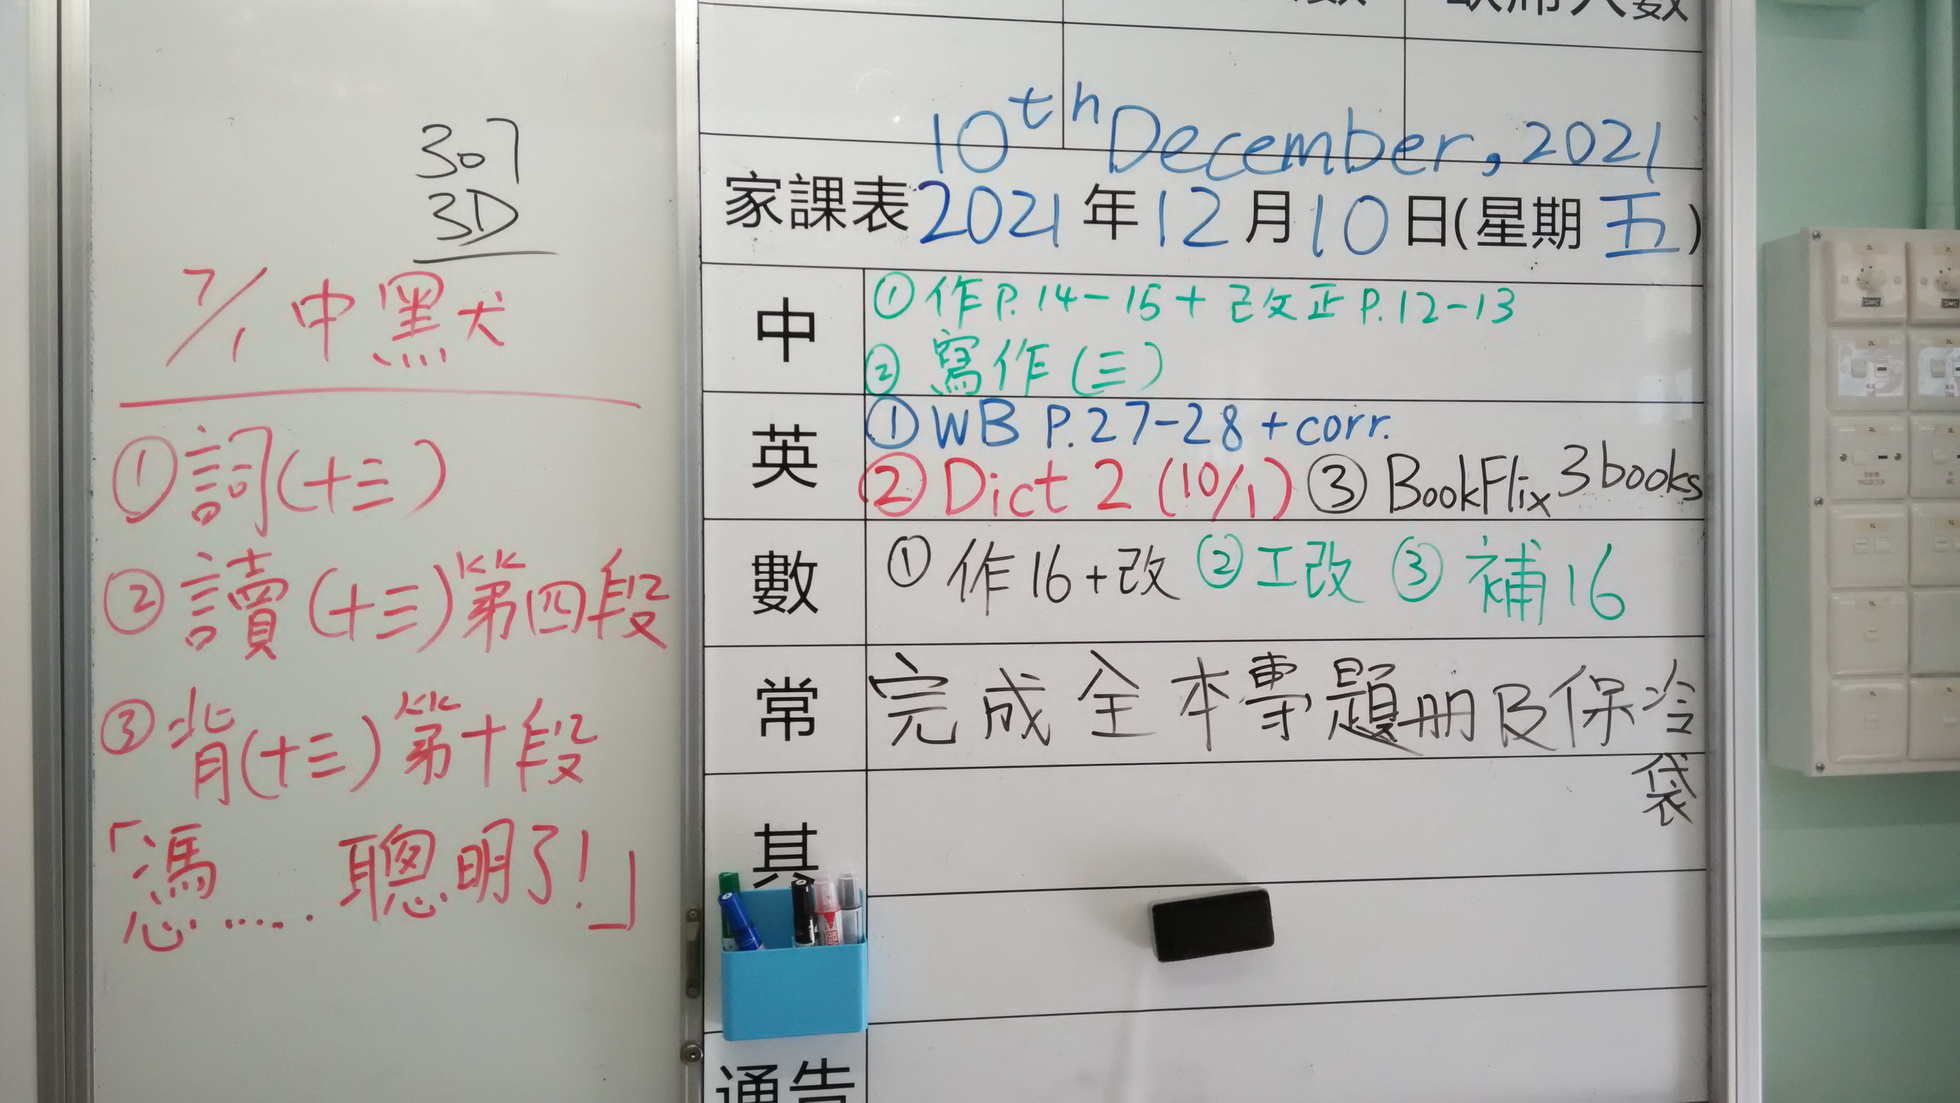 307
3D
7/1 中默
①詞(十三)
②讀(十三)第四段
③背(十三)第十段
「憑......聰明了!」
缺席人數
10th December, 2021
家課表2021年12月10日(星期五)
中
①作P.14-15+改正P.12-13
②寫作(三)
英
①WB P.27-28+corr.
②Dict 2 (10/1) ③BookFlix 3 books
數
①作16+改 ②工改 ③補16
常
完成全本專題册及保冷
袋
其
通告